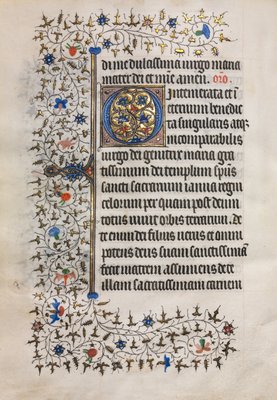 di me dulcissima uirgo maria
mater dei et mie amen. oro.
O intemerata et i
eternum benedic
ta singularis atq;
incomparabilis
uirgo dei genitrix maria gra
tissimum dei templum spūs
sancti sacrarium ianua regni
celorum per quam post deum
totus uiuit orbis terrarum. De
te enim dei filius uerus et omni
potens deus suam sanctissimā
fecit matrem assumens de te
illam sacratissimam carnem